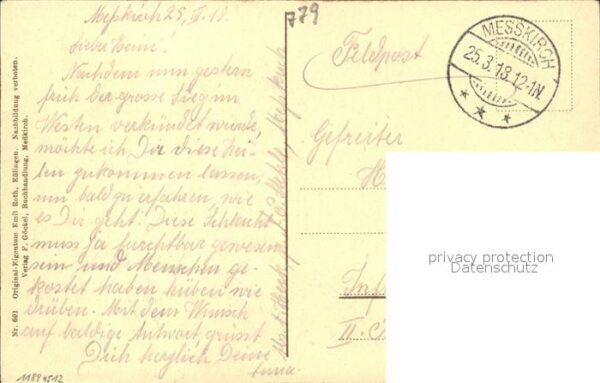 Messkirch 25. III. 18.
779
Nachdem nun gestern
früh der grosse Sieg im
Westen verkündet wurde,
möchte ich Dir diese Zei-
len zukommen lassen,
um bald zu erfahren, wie
es Dir geht. Diese Schlacht
muss ja furchtbar gewesen
sein und Menschen ge-
kostet haben hüben wie
drüben. Mit dem Wunsch
auf baldige Antwort grüsst
Dich herzlich Deine
Anna.
Feldpost
MESSKIRCH
25.3.18.12-1N.
Gefreiter
H
Inf
II. C
privacy protection
Datenschutz
Nr. 601 Original-Eigentum Emil Roth, Eßlingen. Nachbildung verboten.
Verlag F. Göckel, Buchhandlung, Meßkirch.
11894512